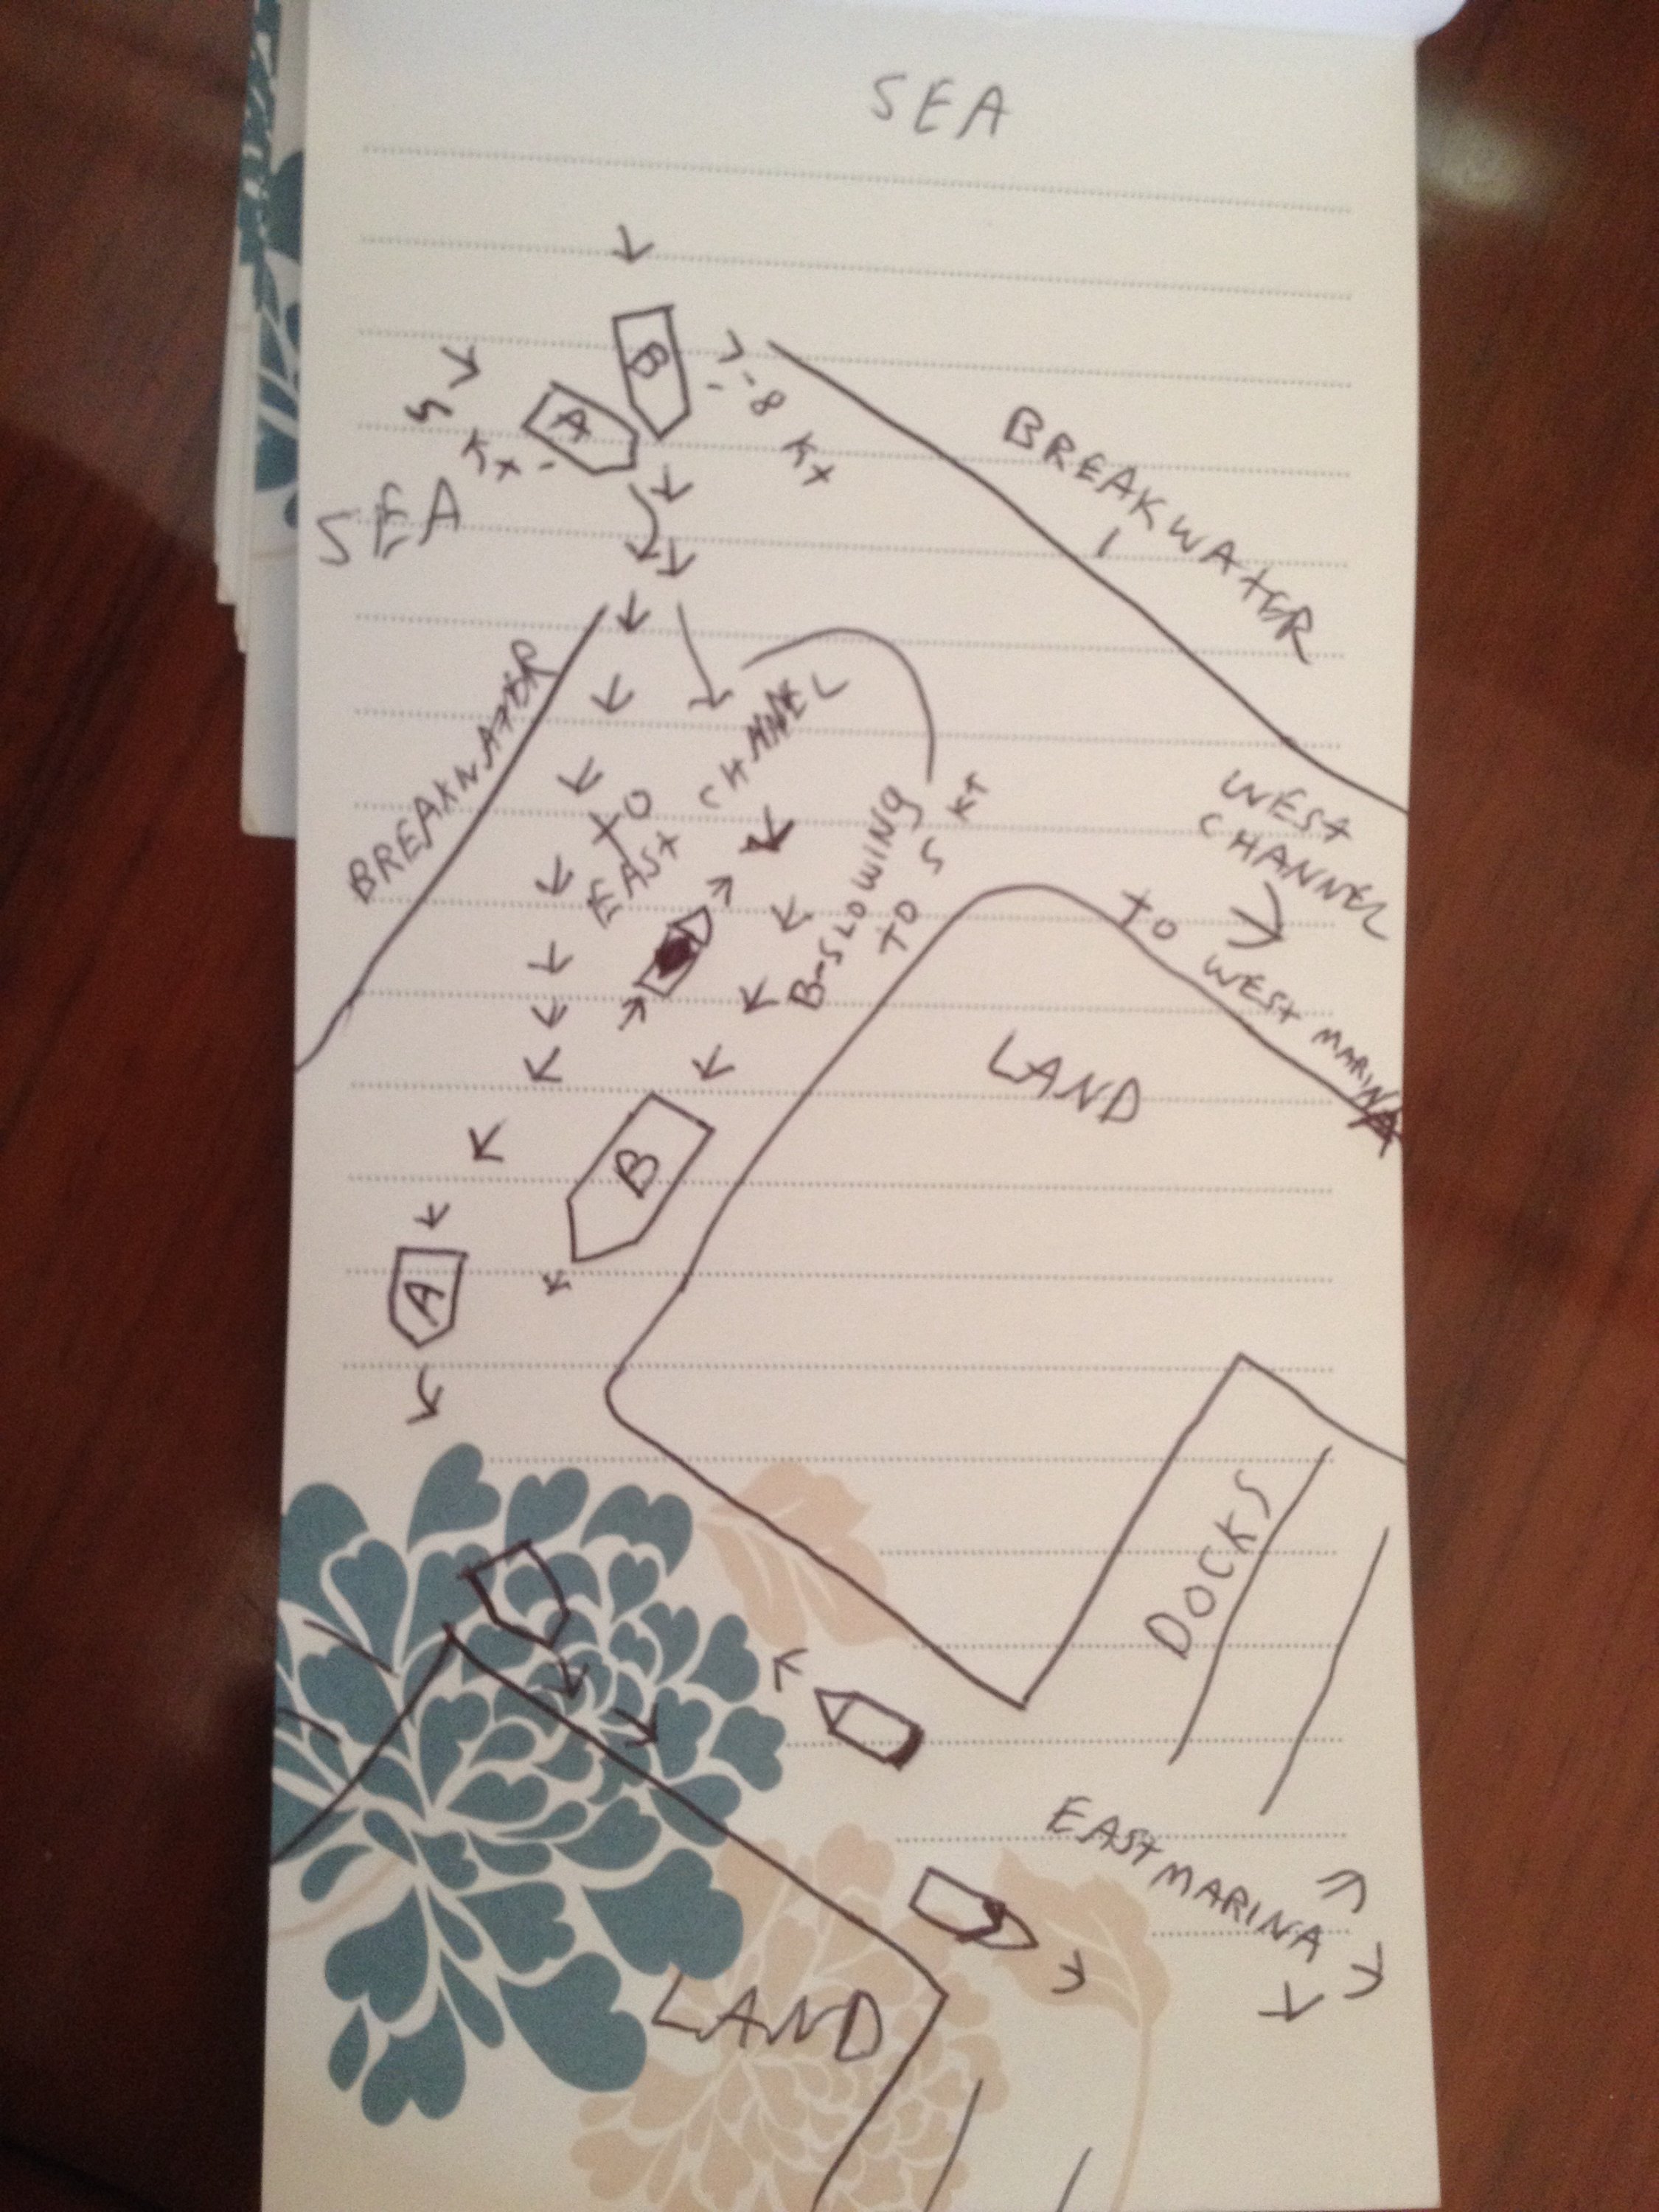 SEA
B
7-8 KT
A
5 KT
SEA
BREAKWATER
BREAKWATER
TO
EAST CHANNEL
B-SLOWING
TO 5 KT
WEST
CHANNEL
TO
WEST MARINA
LAND
B
A
DOCKS
EAST MARINA
LAND